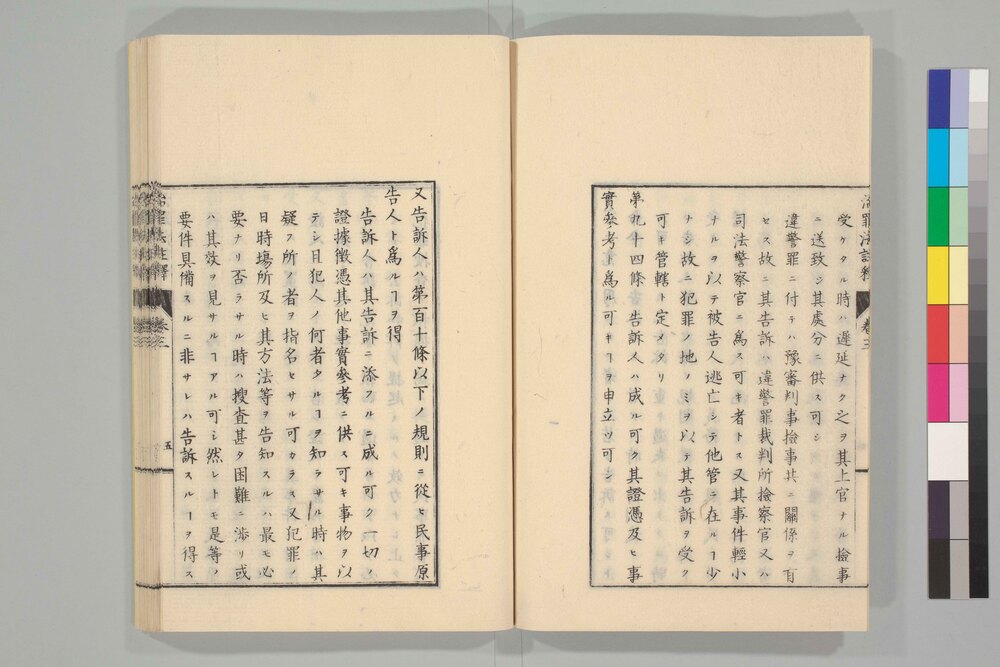 受ケタル時ハ遲延ナク之ヲ其上官ナル檢事
ニ送致シ其處分ニ供ス可シ
違警罪ニ付テハ豫審判事檢事共ニ關係ヲ有
セス故ニ其告訴ハ違警罪裁判所檢察官又ハ
司法警察官ニ爲ス可キ者トス又其事件輕小
ナルヲ以テ被告人逃亡シテ他管ニ在ルヿ少
ナシ故ニ犯罪ノ地ノミヲ以テ其告訴ヲ受ク
可キ管轄ト定メタリ
第九十四條 告訴人ハ成ル可ク其證憑及ヒ事
實參考ト爲ル可キヿヲ申立ツ可シ
又告訴人ハ第百十條以下ノ規則ニ從ヒ民事原
告人ト爲ルヿヲ得
告訴人ハ其告訴ニ添フルニ成ル可ク一切ノ
證據徵憑其他事實參考ニ供ス可キ事物ヲ以
テシ且犯人ノ何者タルヿヲ知ラサル時ハ其
疑フ所ノ者ヲ指名セサル可カラス又犯罪ノ
日時場所及ヒ其方法等ヲ告知スルハ最モ必
要ナリ否ラサル時ハ搜査甚タ困難ニ涉リ或
ハ其效ヲ見サルヿアル可シ然レトモ是等ノ
要件具備スルニ非サレハ告訴スルヿヲ得ス
治罪法註釋 卷三
五